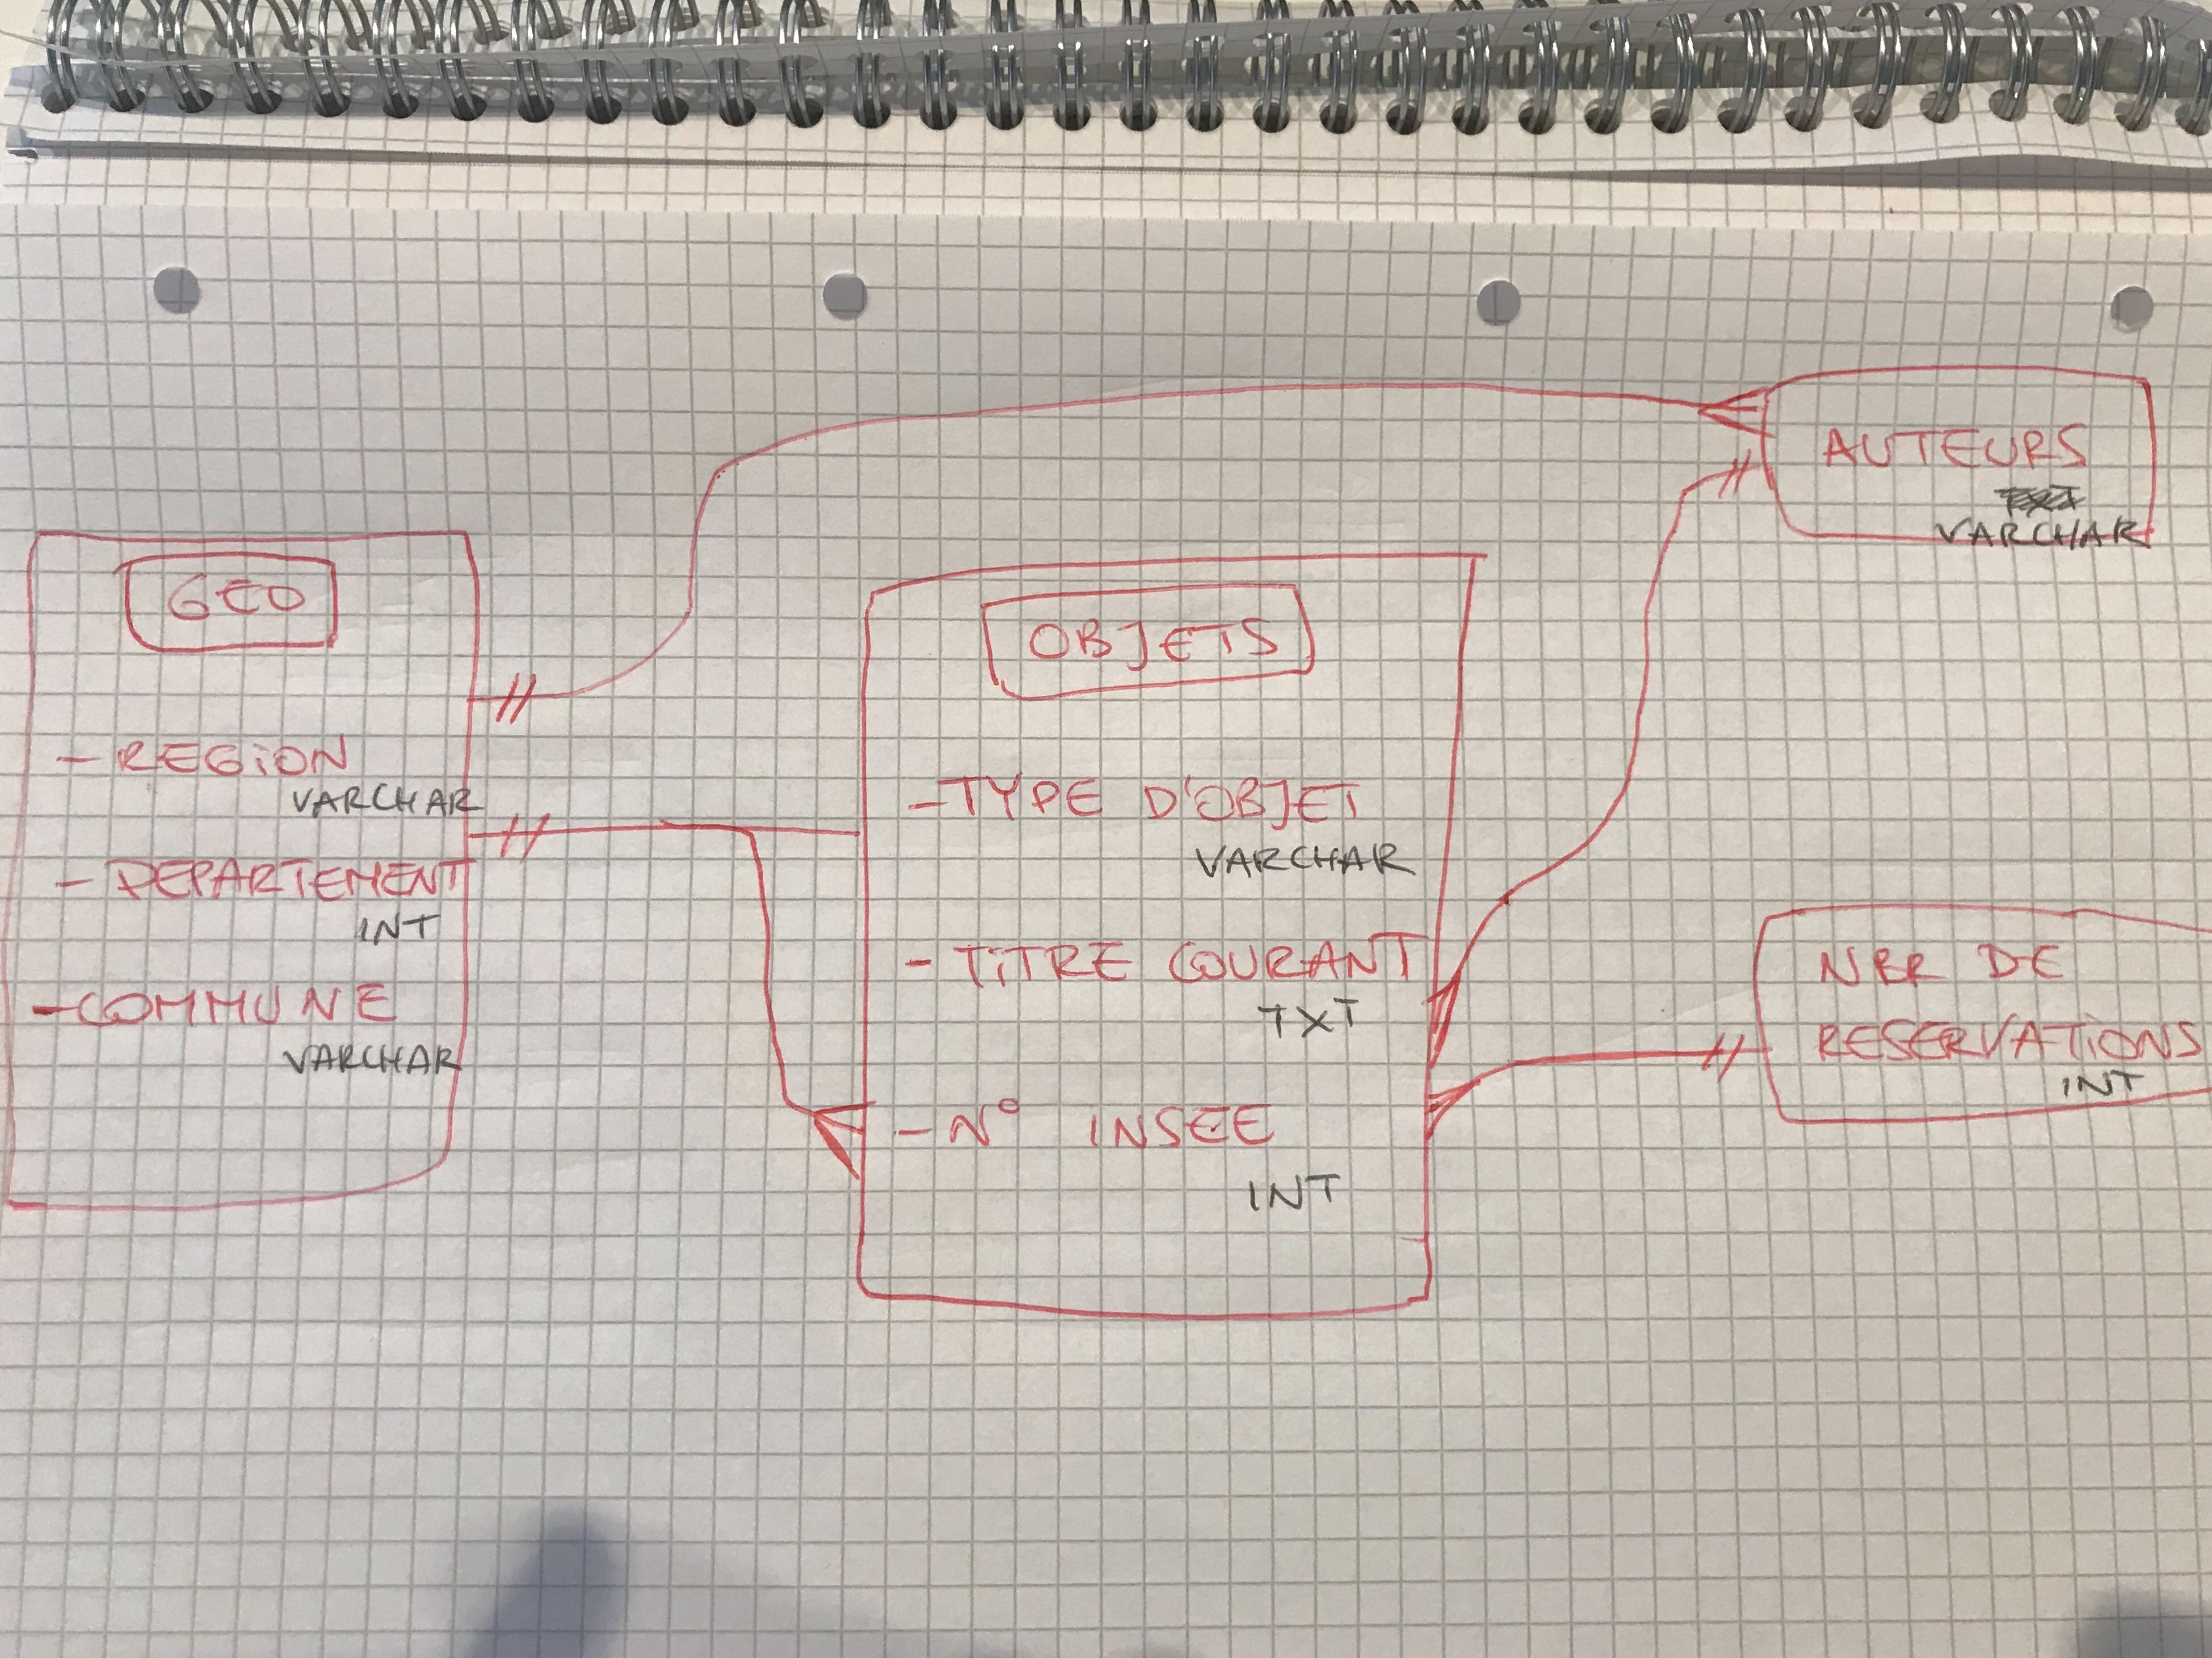 GEO
- REGION
VARCHAR
- DEPARTEMENT
INT
- COMMUNE
VARCHAR
OBJETS
- TYPE D'OBJET
VARCHAR
- TITRE COURANT
TXT
- N° INSEE
INT
AUTEURS
TXT
VARCHAR
NBR DE
RESERVATIONS
INT